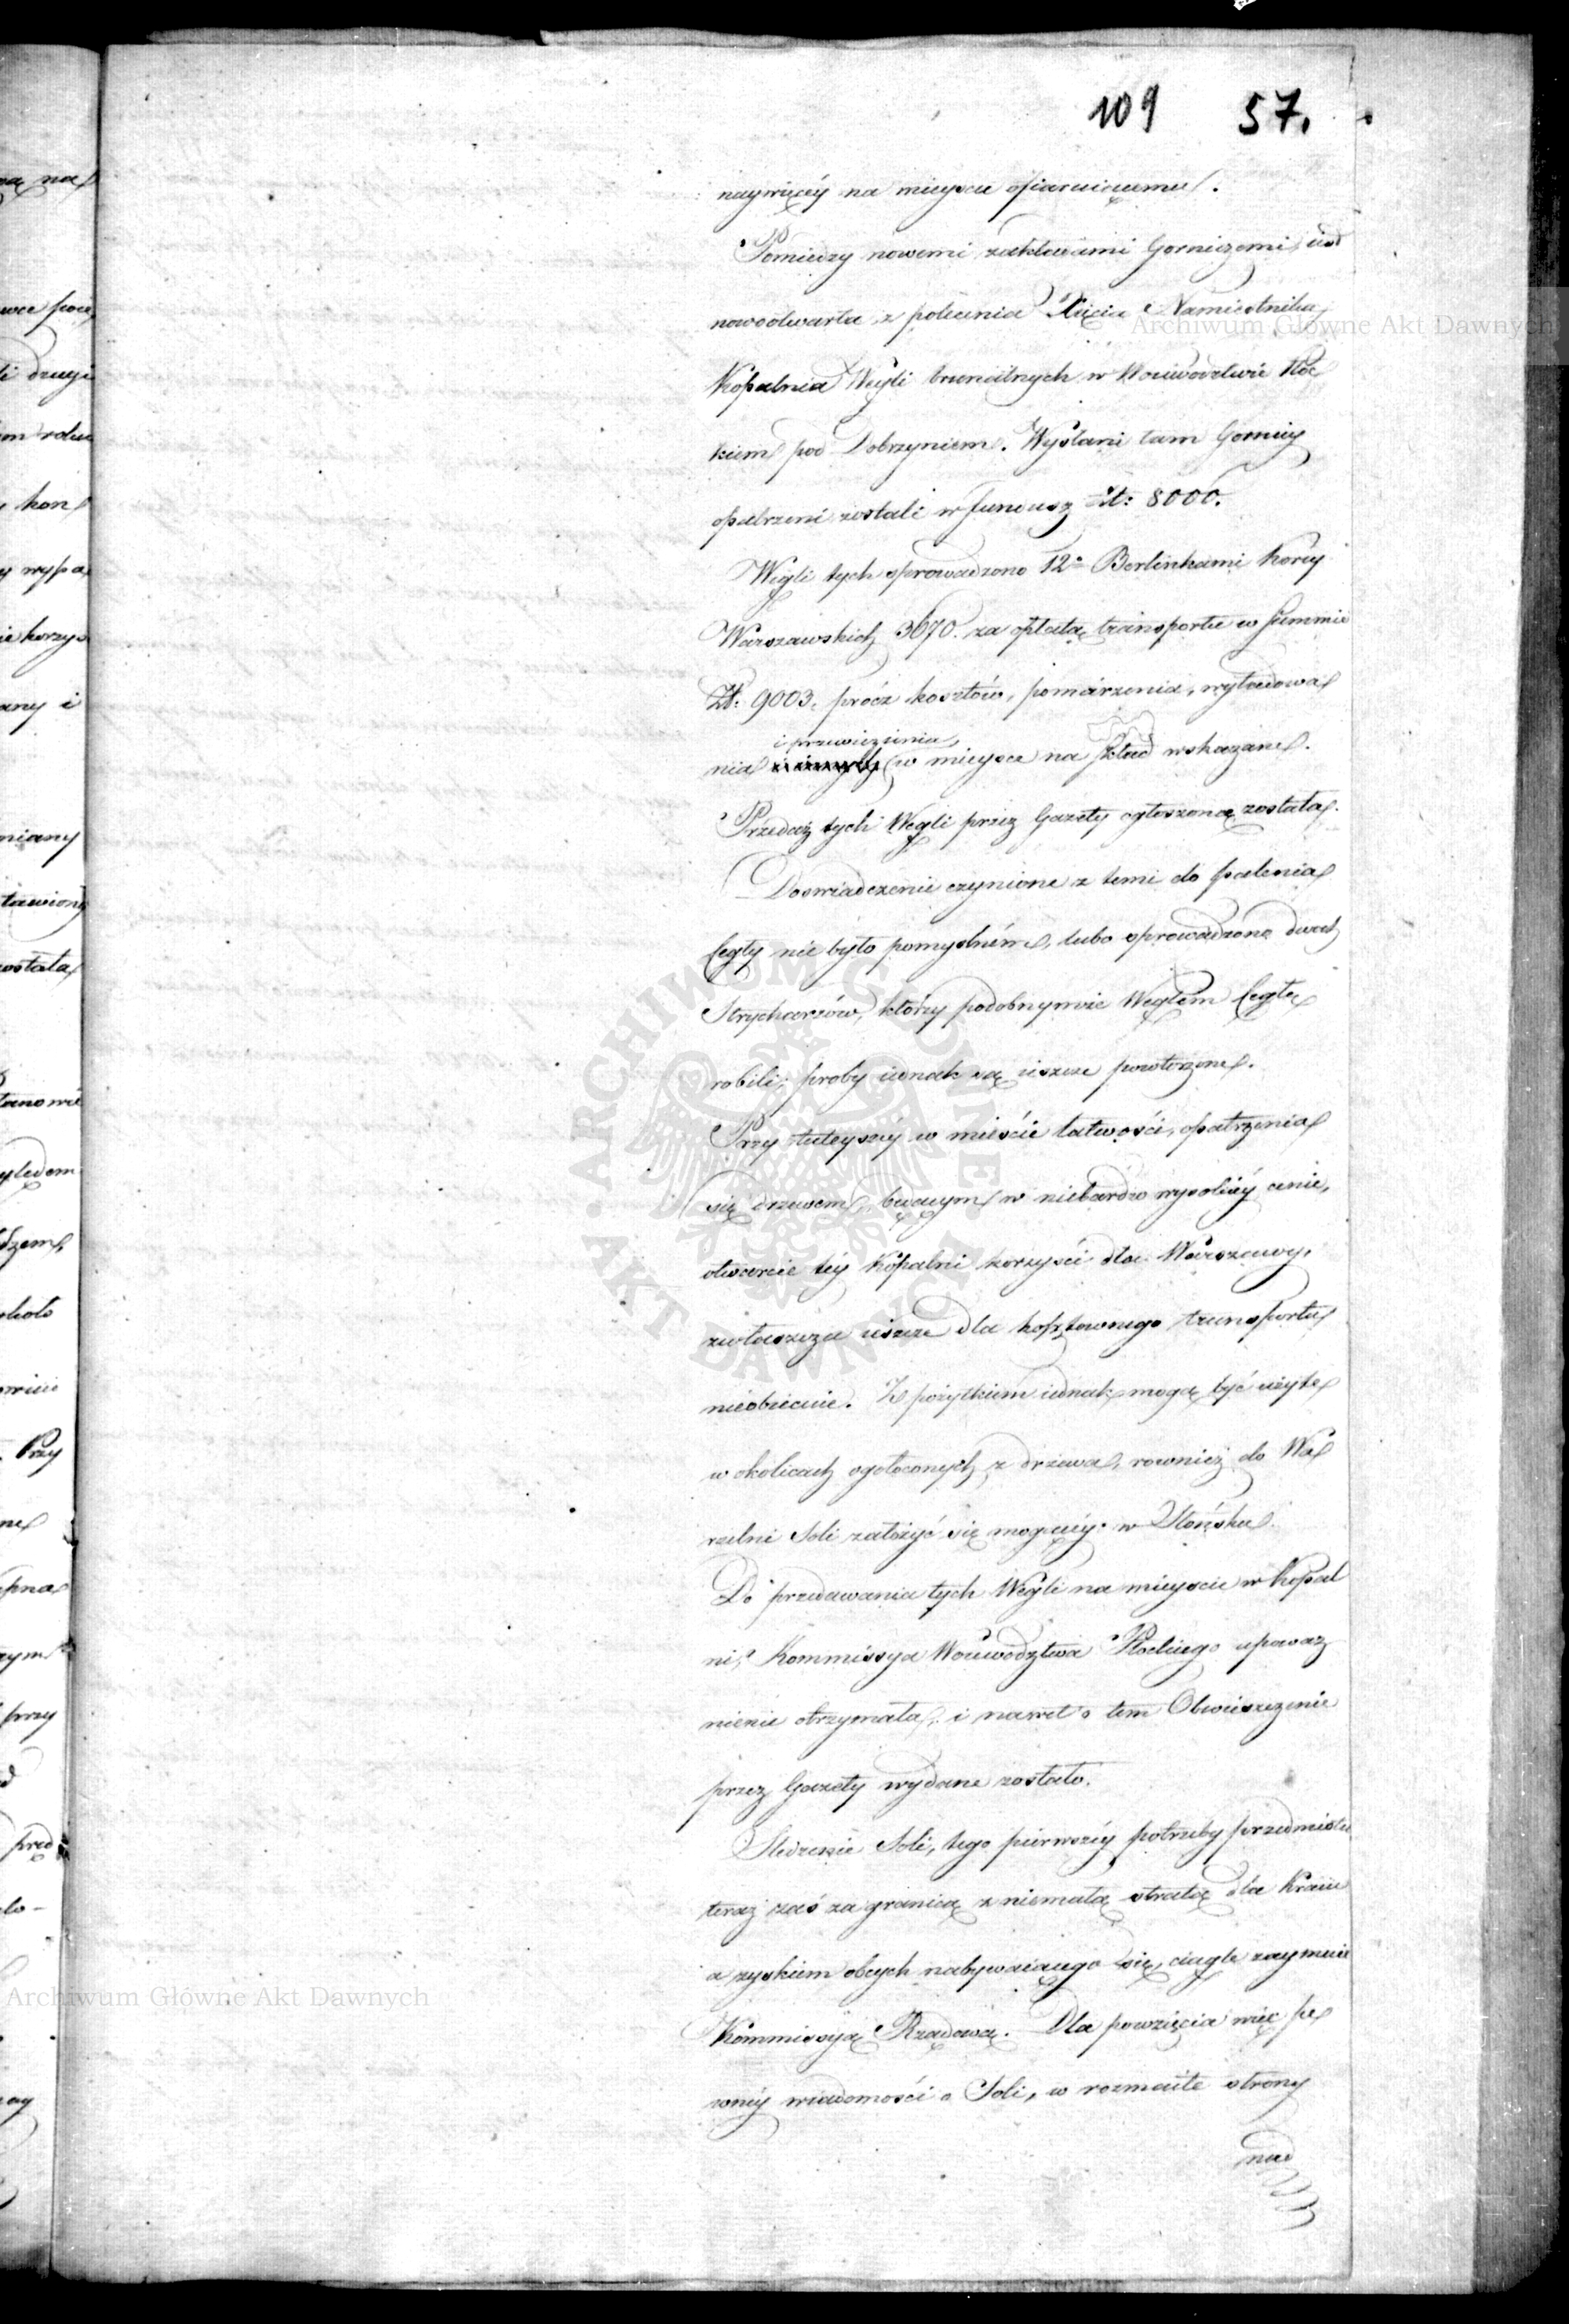 109 57.
naywięcéy na mieyscu ofiaruiącemu.
Pomiędzy nowemi zakładami Gorniczemi, iest
nowootwarta z polecenia Xięcia Namiestnika
Kopalnia Węgli brunatnych w Woiewodztwie Płoc
kiem pod Dobrzyniem. Wysłani tam Gornicy
opatrzeni zostali w fundusz Zł: 8000.
Węgli tych sprowadzono 12. Berlinkami Korcy
Warszawskich 3670. za opłatą transportu w Summie
Zł: 9003. prócz kosztów, pomiarzenia, wyładowa
i przewiezienia,
nia w mieysce na skład wskazane.
Przedaż tych Węgli przez Gazety ogłoszoną została.
Doswiadczenie czynione z temi do palenia
Cegły nie było pomyslném, lubo sprowadzono dwoch
Strycharzów, którzy podobnymże Węglem Cegłę
robili; proby iednak są ieszcze powtorzone.
Przy tuteyszéy w mieście łatwości, opatrzenia
się drzewem, będącym w niebardzo wysokiéy cenie,
otwarcie téy Kopalni korzyści dla Warszawy,
zwłaszcza ieszcze dla kosztownego transportu
nieobiecuie. Z pożytkiem iednak mogą być użyte
w okolicach ogołoconych z drzewa, rownież do Wa
rzelni Soli założyć się mogącéy w Słońsku.
Do przedawania tych Węgli na mieyscu w Kopal
ni, Kommissya Woiewodztwa Płockiego upoważ
nienie otrzymała, i nawet o tem Obwieszczenie
przez Gazety wydane zostało.
Sledzenie Soli, tego pierwszéy potrzeby przedmiotu
teraz zaś za granicą z niemałą stratą dla Kraiu
a zyskiem obcych nabywaiącego się, ciągle zaymuie
Kommissyą Rządową. Dla powzięcia więc pe
wnéy wiadomości o Soli, w rozmaite strony
nad
Archiwum Główne Akt Dawnych
Archiwum Główne Akt Dawnych
ARCHIWUM GŁÓWNE AKT DAWNYCH